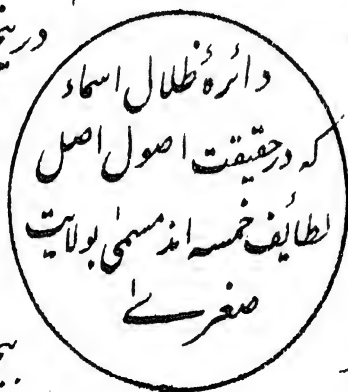 دائرۂ ظلال اسماء
که درحقیقت اصول اصل
لطائف خمسه اند مسمیٰ بولایت
صغریٰ